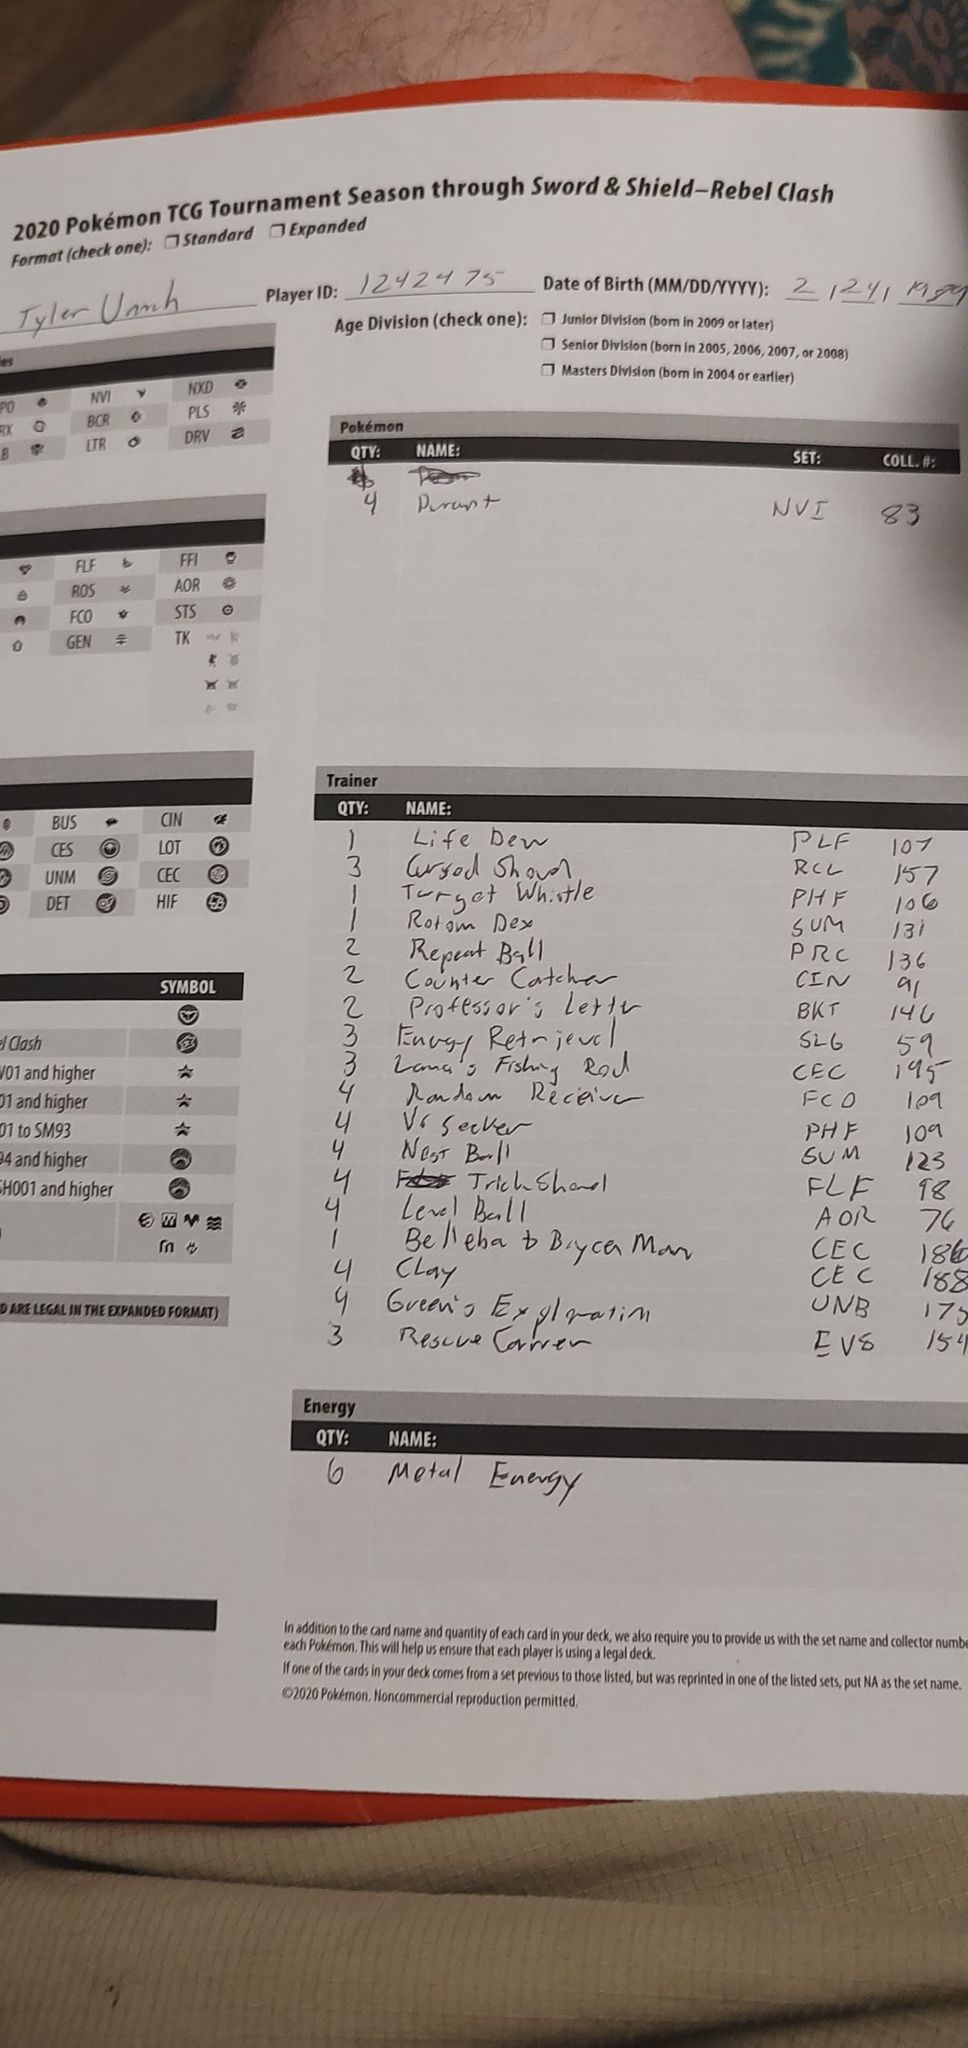 2020 Pokémon TCG Tournament Season through Sword & Shield–Rebel Clash
Format (check one): ❐ Standard ❐ Expanded
Tyler Player ID: 1242475 Date of Birth (MM/DD/YYYY): 2 / 24 /
Age Division (check one): ❐ Junior Division (born in 2009 or later)
❐ Senior Division (born in 2005, 2006, 2007, or 2008)
❐ Masters Division (born in 2004 or earlier)
es
PO NVI NXD
RX BCR PLS
B LTR DRV
FLF FFI
ROS AOR
FCO STS
GEN TK
BUS CIN
CES LOT
UNM CEC
DET HIF
SYMBOL
el Clash
V01 and higher
01 and higher
01 to SM93
94 and higher
SH001 and higher
D ARE LEGAL IN THE EXPANDED FORMAT)
Pokémon
QTY: NAME: SET: COLL. #:
4 Durant NVI 83
Trainer
QTY: NAME:
1 Life Dew PLF 107
3 Cursed Shovel RCL 157
1 Target Whistle PHF 106
1 Rotom Dex SUM 131
2 Repeat Ball PRC 136
2 Counter Catcher CIN 91
2 Professor's Letter BKT 146
3 Energy Retrieval SLG 59
3 Lana's Fishing Rod CEC 195
4 Random Receiver FCO 109
4 VS Seeker PHF 109
4 Nest Ball SUM 123
4 Trick Shovel FLF 98
4 Level Ball AOR 76
1 Bellelba & Brycen Man CEC 186
4 Clay CEC 188
4 Green's Exploration UNB 175
3 Rescue Carrier EVS 154
Energy
QTY: NAME:
6 Metal Energy
In addition to the card name and quantity of each card in your deck, we also require you to provide us with the set name and collector numbe
each Pokémon. This will help us ensure that each player is using a legal deck.
If one of the cards in your deck comes from a set previous to those listed, but was reprinted in one of the listed sets, put NA as the set name.
©2020 Pokémon. Noncommercial reproduction permitted.